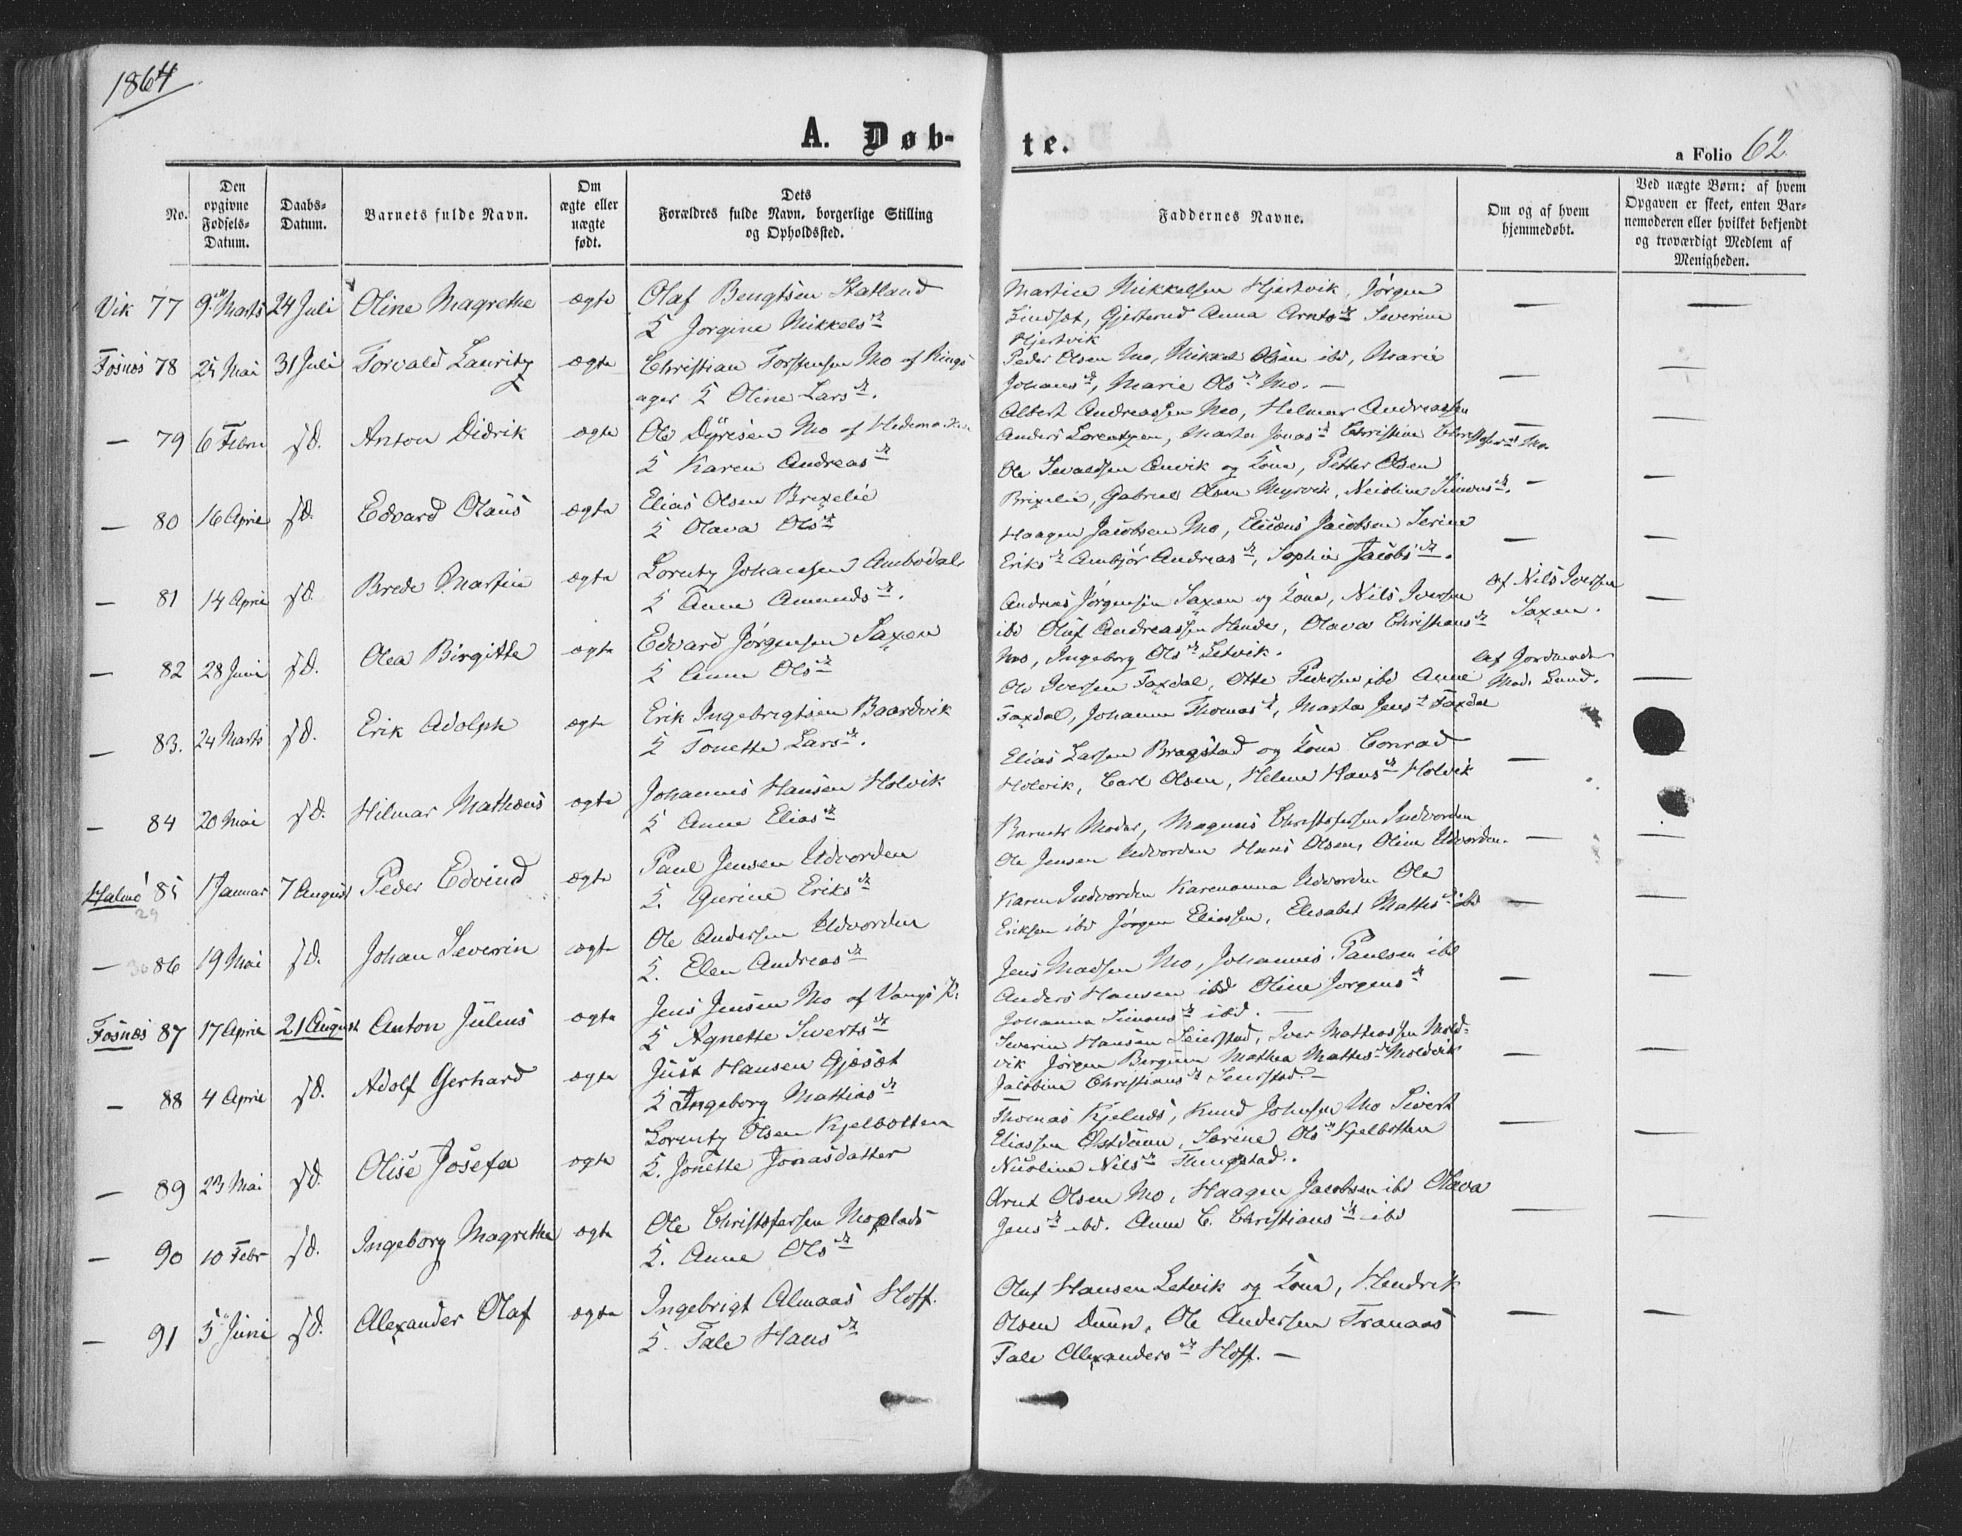 1864
A. Døb-
te.
a Folio 62
No.
Den opgivne Fødsels-Datum.
Daabs-Datum.
Barnets fulde Navn.
Om ægte eller uægte født.
Dets Forældres fulde Navn, borgerlige Stilling og Opholdssted.
Faddernes Navne.
Om og af hvem hjemmedøbt.
Ved uægte Børn: af hvem Opgaven er skeet, enten Barnemoderen eller hvilket bekjendt og troværdigt Medlem af Menigheden.
Vik 77 9 Marts 24 Juli Oline Magrethe ægte Olaf Bengtsen Statland
& Jorgine Mikkelsdr
Martin Mikkelsen Hjertvik, Jørgen
Gjesterud Anna Arntsdr Severine
Hjertvik
Fosnæs 78 25 Mai 31 Juli Torvald Lauritz ægte Christian Torstensen Mo af Rings
ager & Oline Larsdr.
Peder Olsen Mo, Mikkel Olsen ibd, Marie
Johansdr, Marie Olsdr Mo. —
— 79 6 Febru sd. Anton Didrik ægte Ole Dyresen Mo af Hedemarken
& Karen Andreasdr
Albert Andreassen Mo, Helmer Andreassen
Anders Lorentzen, Marta Jonasdr Christine Christofersdr Mo.
— 80 16 April sd. Edvard Olaus ægte Elias Olsen Brexelie
& Olava Olsdr
Ole Sevaldsen Anvik og Kone, Petter Olsen
Brixelie, Gabriel Olsen Myrvik, Simonsdr.
— 81 14 April sd. Brede Martin ægte Lorntz Johansen Ambodal
& Anne Amundsdr.
Haagen Jacobsen Mo, Eliæus Jacobsen Serine
Eriksdr Ambjør Andreasdr, Sophie Jacobsdr.
— 82 28 Juni sd. Olea Birgitte ægte Edvard Jørgensen Saxen
& Anne Olsdr
Andreas Jørgensen Saxen og Kone, Nils Iversen
ibd Oluf Andreassen Olava Christiansdr
Mo, Ingeborg Olsdr Letvik.
af Nils Iversen
Saxen.
— 83. 24 Marts sd. Erik Adolph ægte Erik Ingebrigtsen Baardvik
& Tonette Larsdr.
Ole Iversen Faxdal, Otte Pedersen ibd Anne
Faxdal, Johanna Thomasdr, Marta Jensdr Faxdal
af Jordmoder
Lund.
— 84 20 Mai sd. Hilmar Mathæus ægte Johannes Hansen Holvik
& Anne Eliasdr
Elias Larsen Bragstad og Kone Conrad
Holvik, Carl Olsen, Helene Hansdr Holvik
Halmø 85 1 Januar 7 August Peder Edvind ægte Paul Jensen Udvorden
&. Gurine Eriksdr
29
Barnets Moder, Magnus Christofersen Indvorden
Ole Jensen Udvorden Hans Olsen, Oline Udvorden.
— 30 86 19 Mai sd. Johan Severin ægte Ole Andersen Udvorden
&. Elen Andreasdr
Karen Indvorden Karenanna Udvorden Ole
Eriksen ibd Jørgen Eliassen, Elisabet Mattisdr ibd
Fosnæs 87 17 April 21 August Anton Julius ægte Jens Jensen Mo af Vangs K.
& Agnette Sivertsdr
Jens Madsen Mo, Johannes Paulsen ibd
Anders Hansen ibd Oline Jørgensdr
Johanna Simonsdr ibd. —
— 88 4 April sd. Adolf Gerhard ægte Just Hansen Gjæsæt
& Ingeborg Mattiasdr
Severin Hansen Seierstad, Iver Mathiassen Mold-
vik Jørgen Mathea Mattisdr Moldvik
Jacobine Christiansdr Seierstad. —
— 89 23 Mai sd. Olise Josefa ægte Lorentz Olsen Kjelbotten
&. Jonette Jonasdatter
Thomas Kjelnes, Knud Johnsen Mo Sivert
Eliassen Østduun, Serine Olsdr Kjelbotten
Nicoline Nilsdr
— 90 10 Febr sd. Ingeborg Magrethe ægte Ole Christofersen Moplads
&. Anne Olsdr
Arnt Olsen Mo, Haagen Jacobsen ibd Olava
Jensdr ibd. Anne C. Christiansdr ibd
— 91 5 Juni sd. Alexander Olaf ægte Ingebrigt Almaas Hoff.
&. Tale Hansdr
Oluf Hansen Letvik og Kone, Hendrik
Olsen Duun, Ole Andersen Tranaas
Tale Alexandersdr Hoff. —